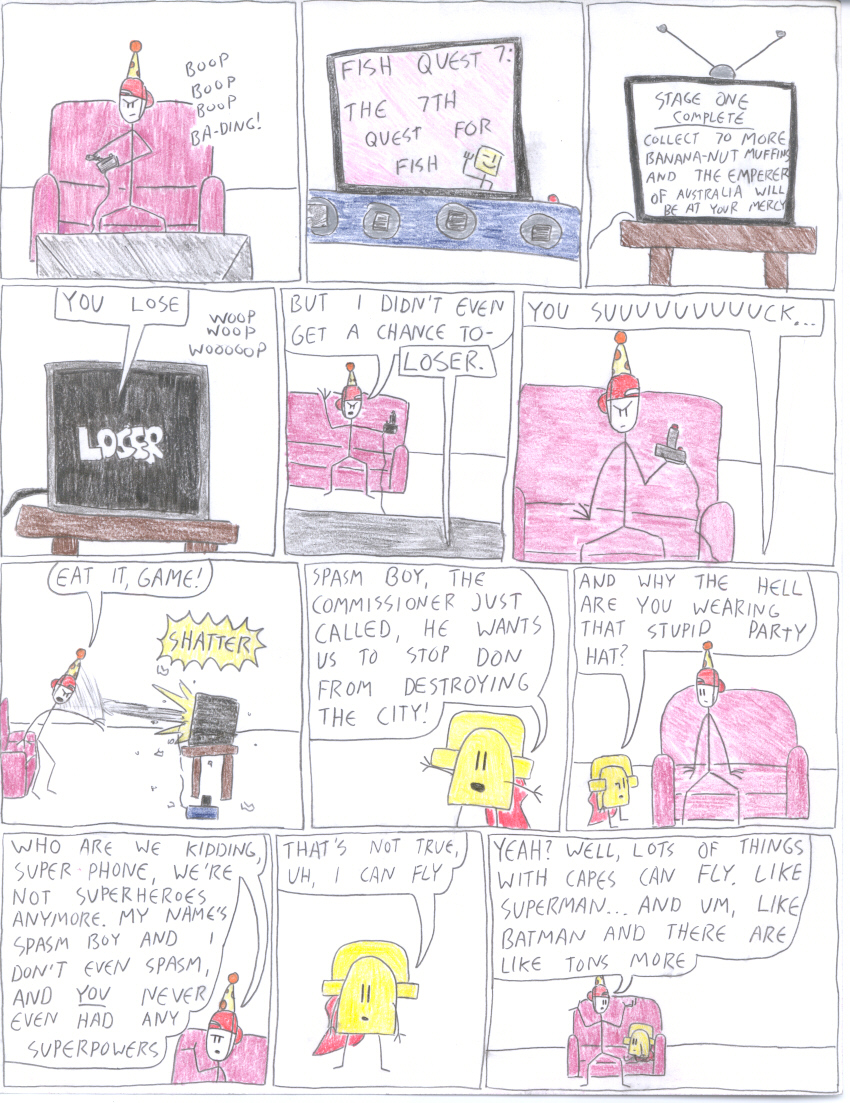 BOOP
BOOP
BOOP
BA-DING!
FISH QUEST 7:
THE 7TH
QUEST FOR
FISH
STAGE ONE
COMPLETE
COLLECT 70 MORE
BANANA-NUT MUFFINS
AND THE EMPERER
OF AUSTRALIA WILL
BE AT YOUR MERCY
YOU LOSE
WOOP
WOOP
WOOOOOP
LOSER
BUT I DIDN'T EVEN
GET A CHANCE TO-
LOSER.
YOU SUUUUUUUUUUCK...
EAT IT, GAME!
SHATTER
SPASM BOY, THE
COMMISSIONER JUST
CALLED, HE WANTS
US TO STOP DON
FROM DESTROYING
THE CITY!
AND WHY THE HELL
ARE YOU WEARING
THAT STUPID PARTY
HAT?
WHO ARE WE KIDDING,
SUPER-PHONE, WE'RE
NOT SUPERHEROES
ANYMORE. MY NAME'S
SPASM BOY AND I
DON'T EVEN SPASM,
AND YOU NEVER
EVEN HAD ANY
SUPERPOWERS
THAT'S NOT TRUE,
UH, I CAN FLY
YEAH? WELL, LOTS OF THINGS
WITH CAPES CAN FLY. LIKE
SUPERMAN... AND UM, LIKE
BATMAN AND THERE ARE
LIKE TONS MORE